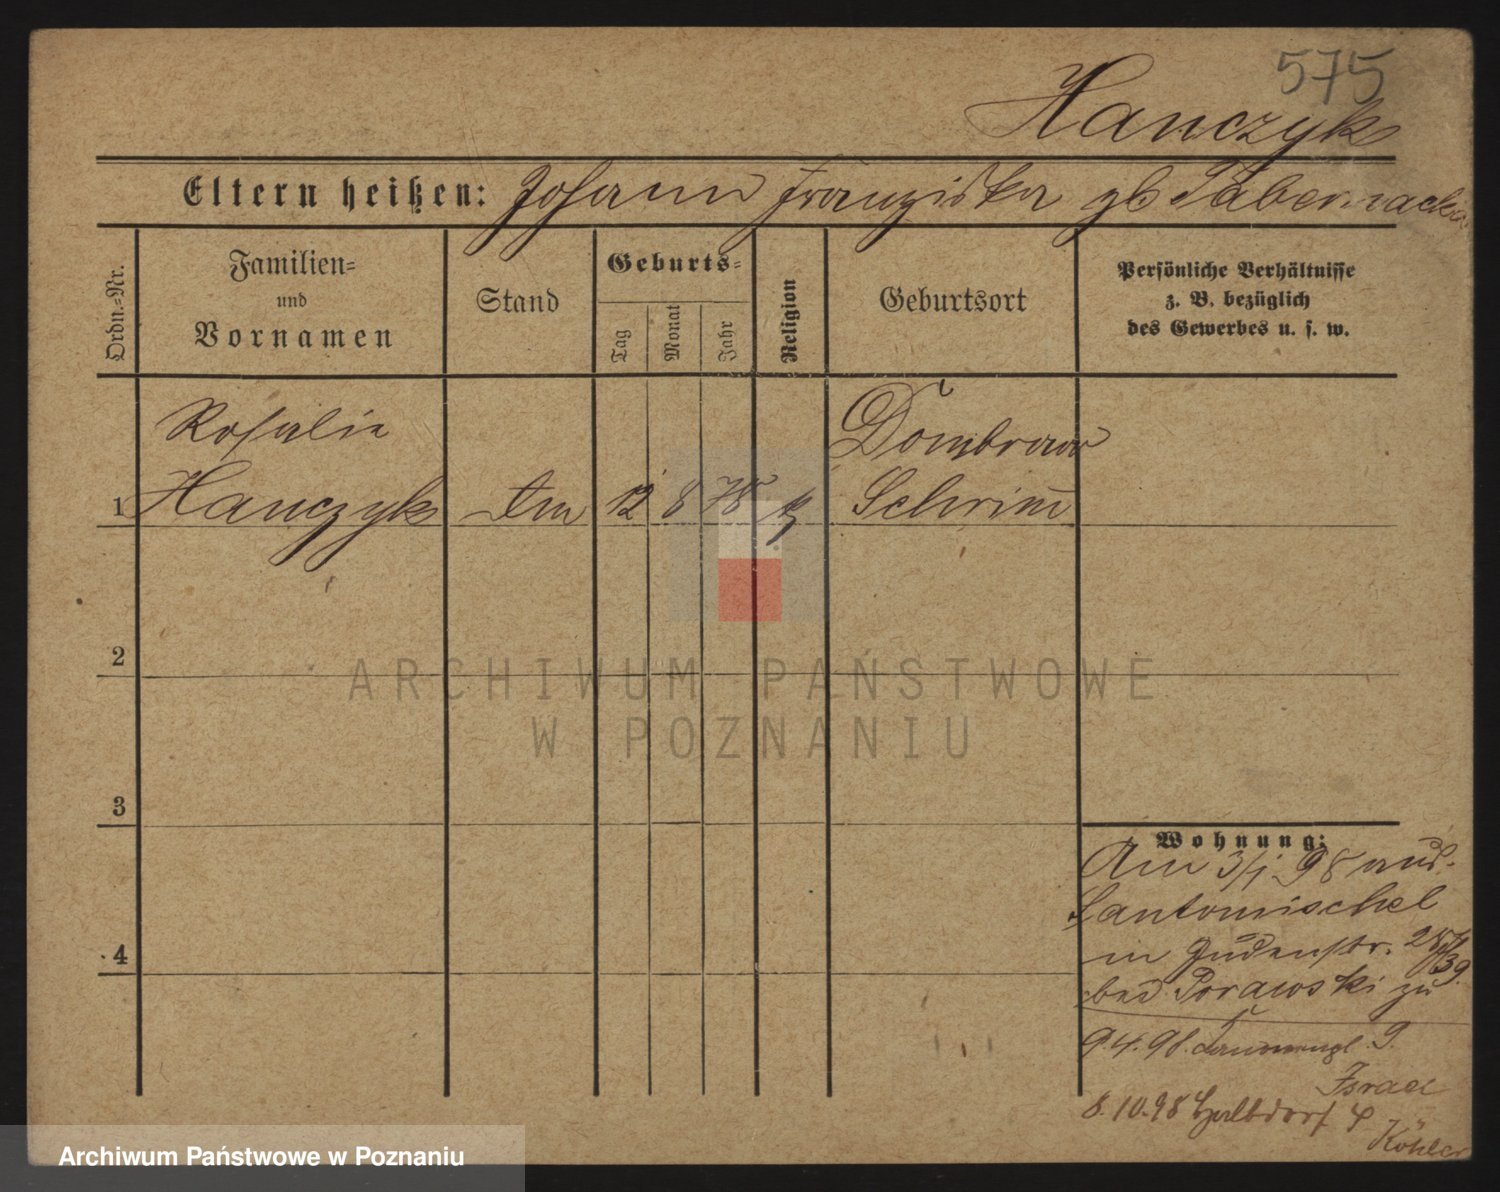 575
Hanczyk
Eltern heißen: Johann Franziska gb Tabernacka
Ordn.=Nr.
Familien=
und
Vornamen
Stand
Geburts=
Tag
Monat
Jahr
Religion
Geburtsort
Persönliche Verhältnisse
z. B. bezüglich
des Gewerbes u. s. w.
Rosalie
Dombrowo
1 Hanczyk 12 8 78 k Schrim
2
ARCHIWUM PAŃSTWOWE
W POZNANIU
3
Wohnung:
Am 3/1 98 aus
Santomischel
in Judenstr.
bei Porawski zu
9.4.98. 9.
Israel
8.10.98 Halbdorf 4
Köhler
4
Archiwum Państwowe w Poznaniu